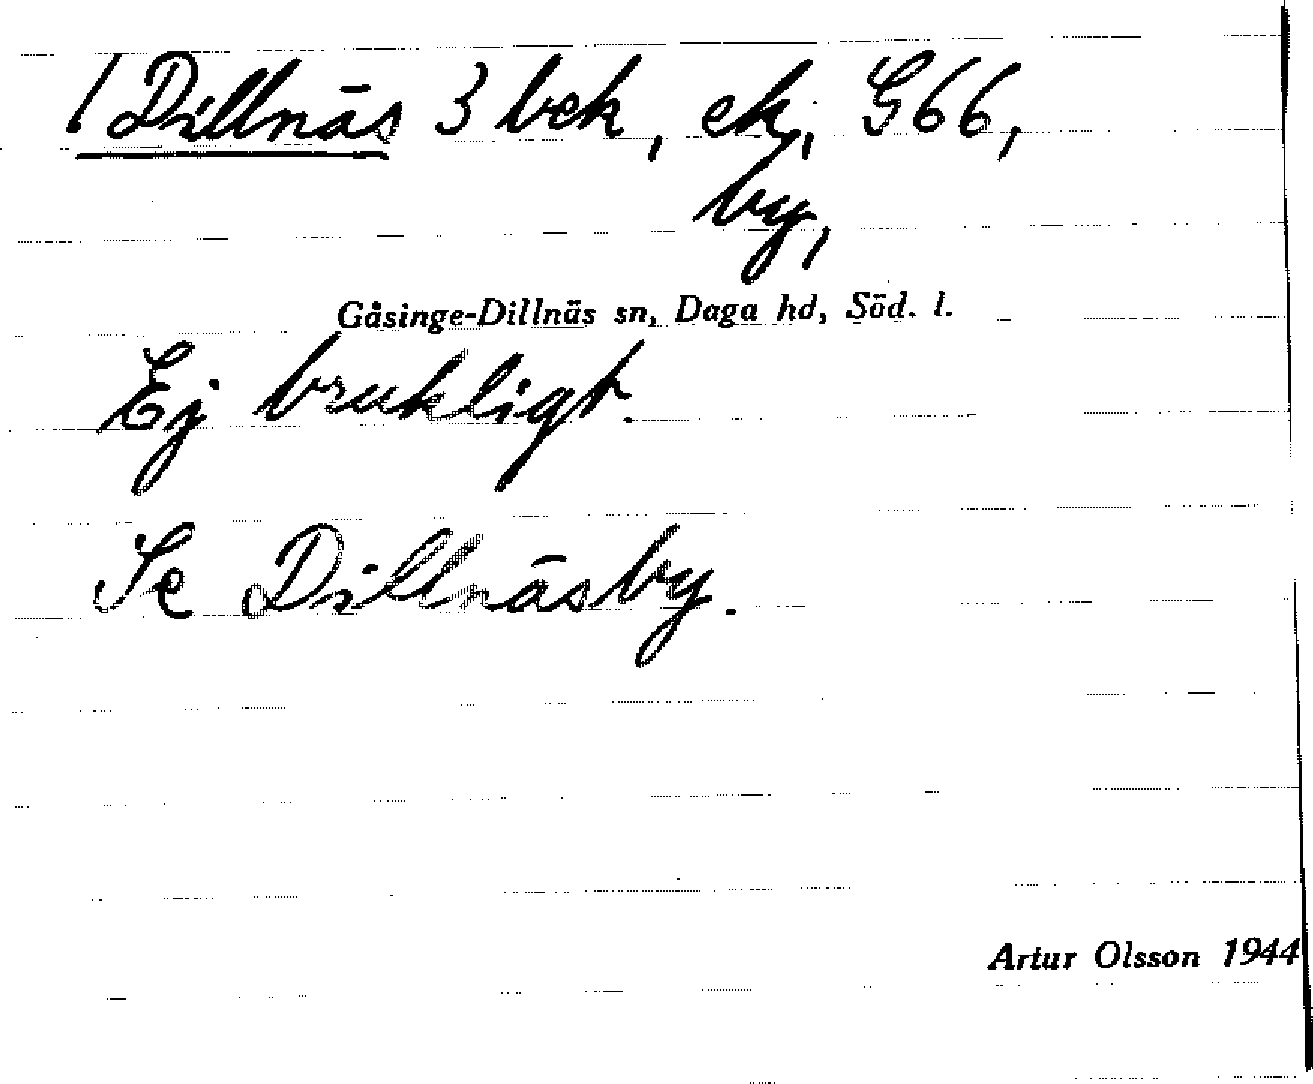 ! Dillnäs 3 bek, ek, G66,
by,
Gåsinge-Dillnäs sn, Daga hd, Söd. l.
Ej brukligt.
Se Dillnäsby.
Artur Olsson 1944